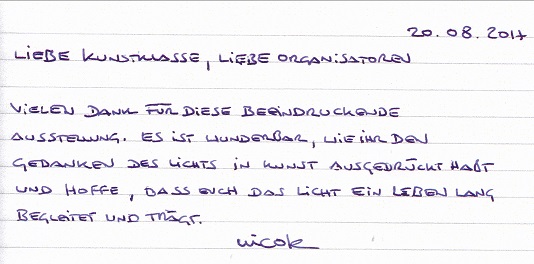 20.08.2017
LIEBE KUNSTKLASSE, LIEBE ORGANISATOREN
VIELEN DANK FÜR DIESE BEEINDRUCKENDE
AUSSTELLUNG. ES IST WUNDERBAR, WIE IHR DEN
GEDANKEN DES LICHTS IN KUNST AUSGEDRÜCKT HABT
UND HOFFE, DASS EUCH DAS LICHT EIN LEBEN LANG
BEGLEITET UND TRÄGT.
Nicole